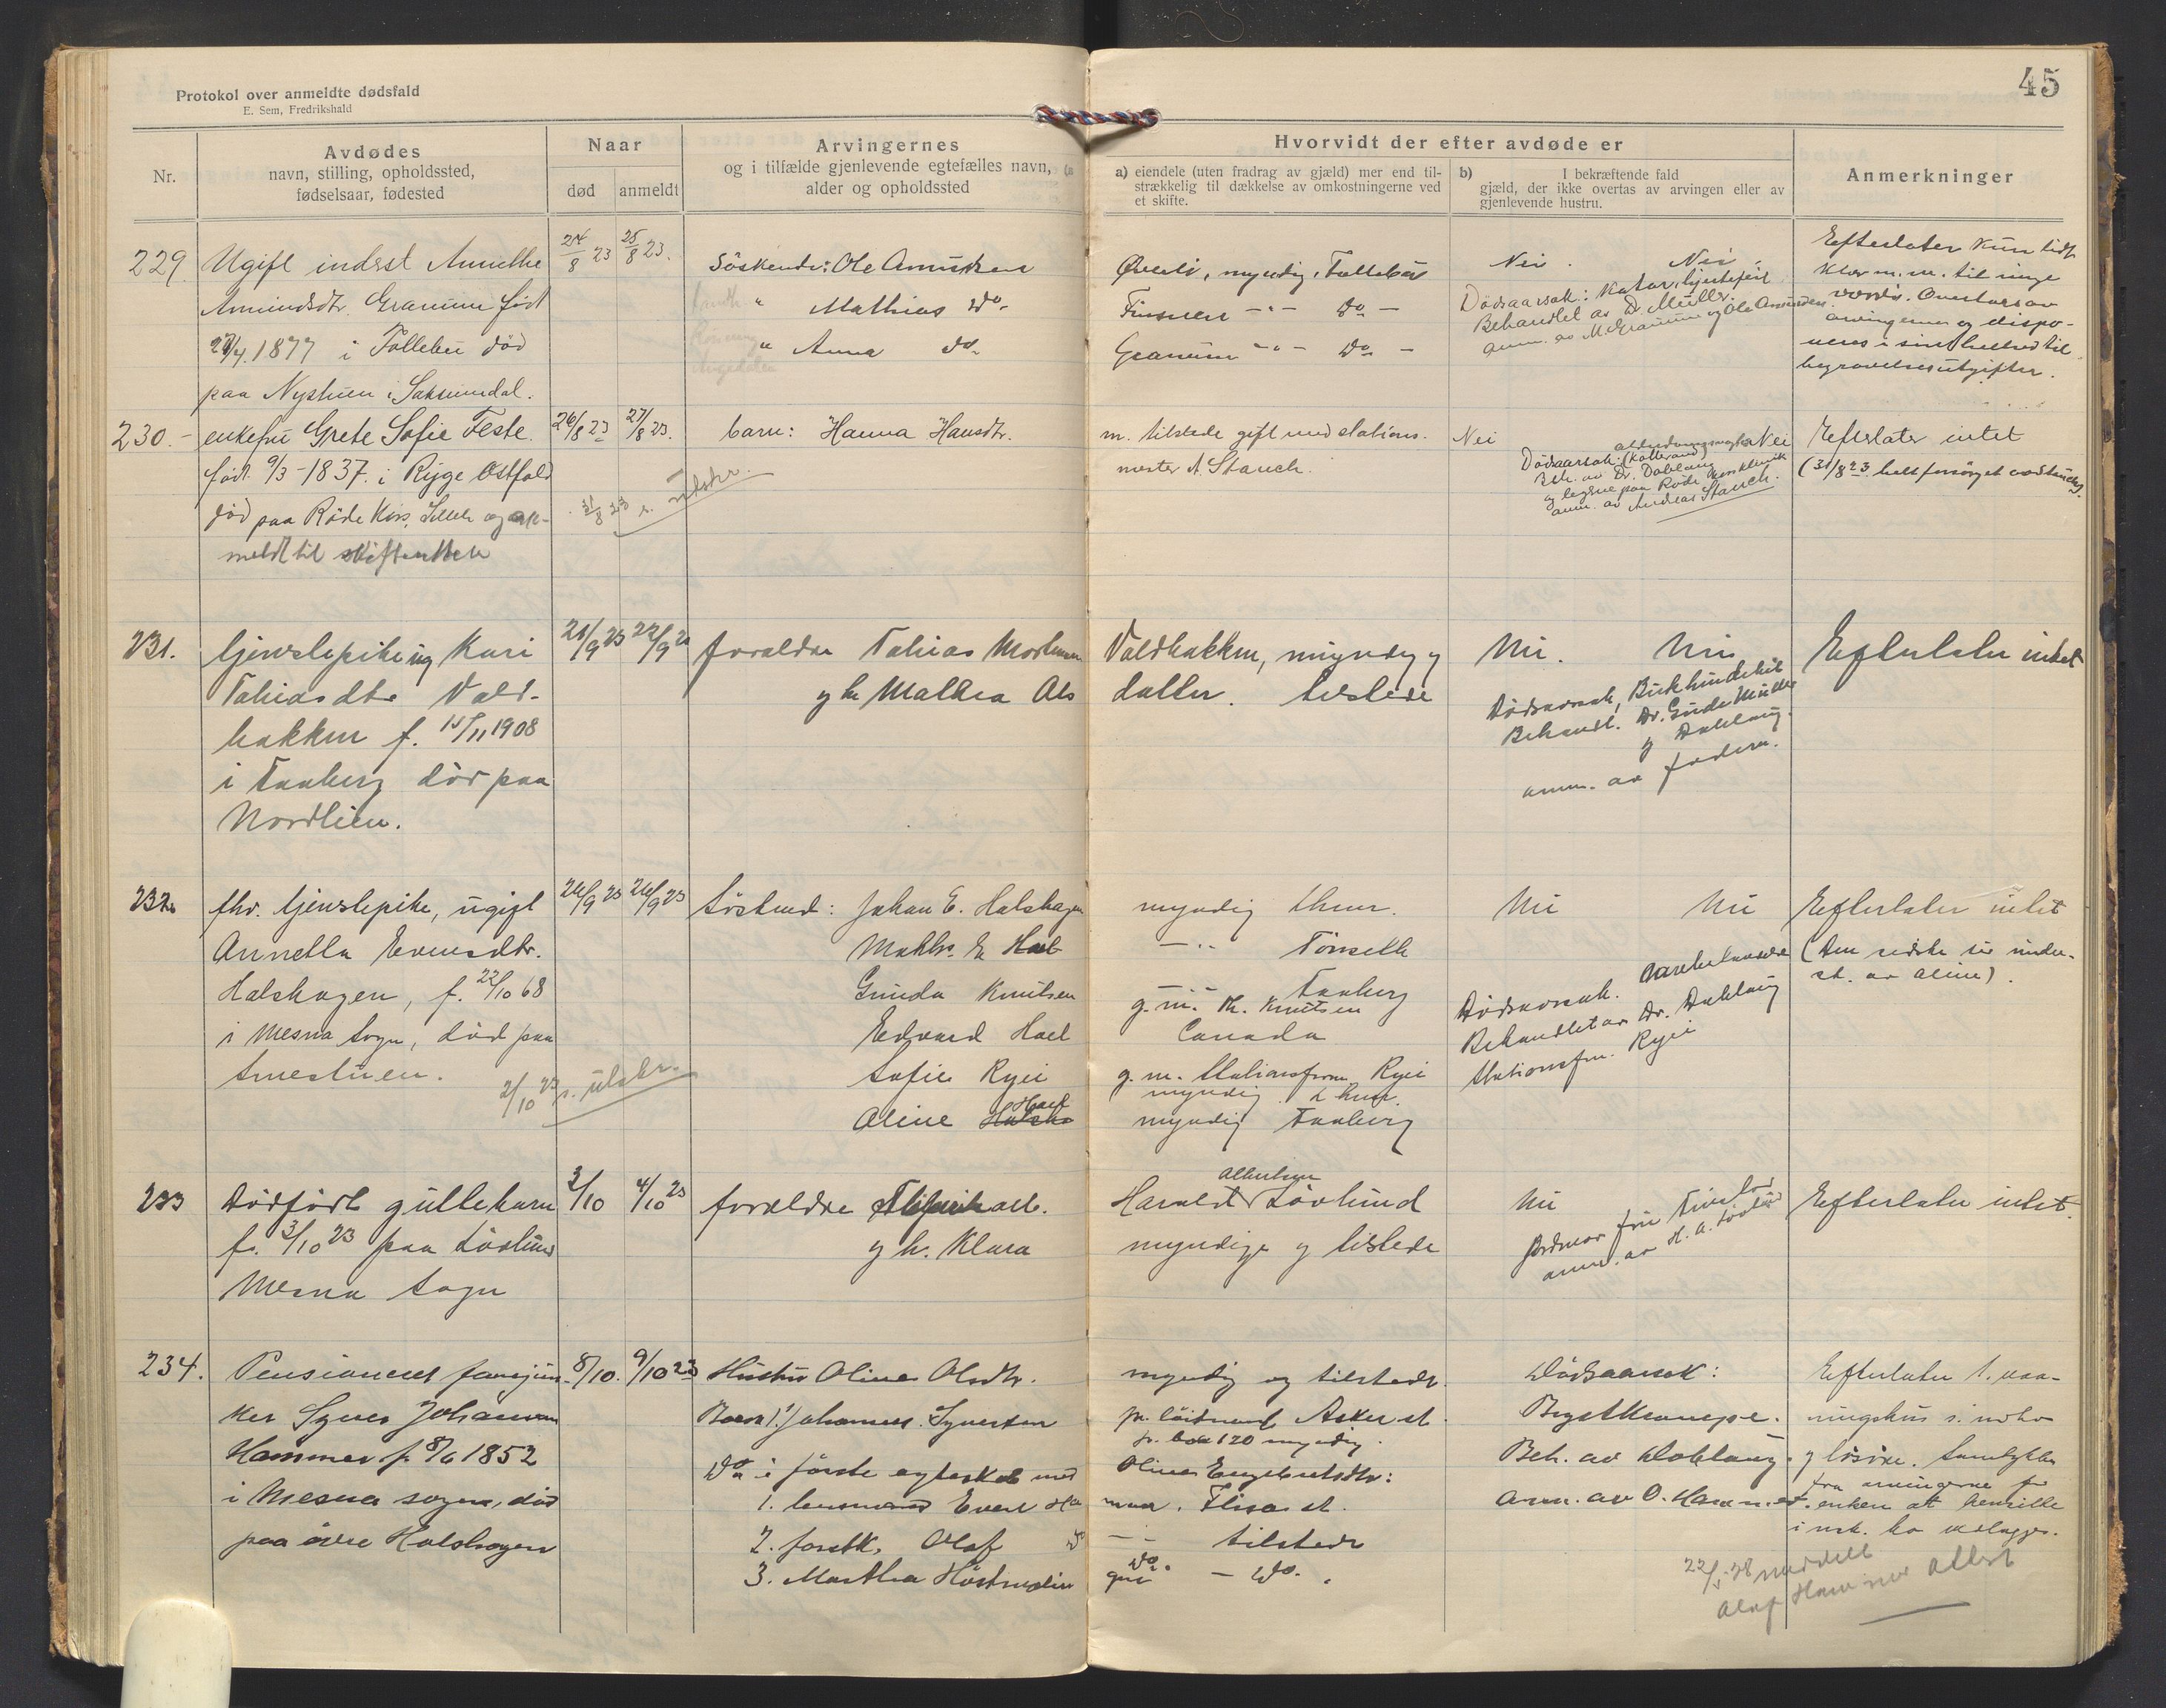 45
Protokol over anmeldte dødsfald
E. Sem, Fredrikshald
Nr.
Avdødes
navn, stilling, opholdssted,
fødselsaar, fødested
Naar
død
anmeldt
Arvingernes
og i tilfælde gjenlevende egtefælles navn,
alder og opholdssted
Hvorvidt der efter avdøde er
a) eiendele (uten fradrag av gjæld) mer end til-
strækkelig til dækkelse av omkostningerne ved
et skifte.
b) I bekræftende fald
gjæld, der ikke overtas av arvingen eller av
gjenlevende hustru.
Anmerkninger
229.
Ugift inderst Annethe
Amundsdtr. Granum født
1877 i Follebu død
paa Nyshuen i Saksumdal.
24/8 23
25/8 23.
Söskende: Ole Amundsen
" Mathias do.
" Anna do.
Överli, myndig, Follebu
do
Granum do
Nei.
Nei.
Dödsaarsak: Katar, hjertefeil
Behandlet av Dr. Müller.
anm. av M. Granum og Ole Amundsen.
Efterlater kun lidt
klær m.m. til ringe
værdi. Overtas av
arvingerne og dispo-
neres i sin helhed til
begravelsesutgifter.
230.
enkefru Grete Sofie Feste
født 9/3-1837 i Rygge Østfold
död paa Röde Kors, Lilleh. og an-
meldt til skifteretten
26/8 23
27/8 23.
31/8 23 s. utskr.
barn: Hanna Hansdtr.
m. tilstede gift med stations-
mester A. Stauch.
Nei
Nei
Dödsaarsak: (Kolbrand)
Beh. av Dr. Dahlaug
og lægerne paa Röde Kors klinik
anm. av Andreas Stauch.
Efterlater intet
(31/8 23
231.
tjenestepike ug. Kari
Tobiasdtr. Vold-
bakken f. 15/11 1908
i Faaberg död paa
Nordlien.
21/9 23
22/9 23
forældre Tobias Mortensen
og h. Mathea Ols
Voldbakken, myndig og
datter. tilstede
Nei.
Nei
Dödsaarsak,
Behandl. Dr. Gude Müller
og Dahlaug.
anm. av faderen.
Efterlater intet
232.
fhv. tjenestepike, ugift
Annetta Evensdtr.
Halshagen, f. 22/10 68
i Mesna sogn, död paa
Smestuen.
24/9 23
24/9 23
2/10 23 s. utskr.
Söskend: Johan E. Halshagen
Maths. E. Hals
Gunda Knutsen
Edvard Hals
Sofie Ryei
Aline Hals
myndig Lhmr.
Faaberg
g. m. Th. Knutsen
Canada
g. m. Stationsfm. Ryei
myndig. Lhmr.
myndig Faaberg
Nei
Nei
Dödsaarsak.
Behandlet av Dr. Dahlaug
Stationsfm. Ryei
Efterlater intet
(Den sidste tid under-
st. av Aline).
233
Dödfödt guttebarn
f. 3/10 23 paa Lövlund
Mesna sogn
3/10
4/10 23
forældre
og h. Klara
Harald Albertsen Lövlund
myndige og tilstede
Nei
Jordmor fru
anm. av H. A. Lövlund
Efterlater intet.
234.
Pensioneret fanejun-
ker Syver Johansen
Hammer f. 8/6 1852
i Mesna sogn, död
paa övre Halshagen
8/10.
9/10 23
Hustru Oline Olsdtr.
Barn 1. Johannes Syversen
Do i förste egteskab med
1. lensmand Evert Ha
2. forstk. Olaf do
3. Marthea
myndig og tilstede.
pr. löitnant Asker st.
pr. box 120 myndig.
Oline Engebretsdtr:
mynd. Flisa st.
tilstede
do
do.
Dödsaarsak:
Brystkrampe.
Beh. av Dahlaug.
Anm. av O. Hammer.
Efterlater 1. vaa-
ningshus
og lösöre. Samtykke
fra arvingerne for
enken at hensitte
i usk. bo vedlægges.
22/5 28 meddelt
Olaf Hammer attest